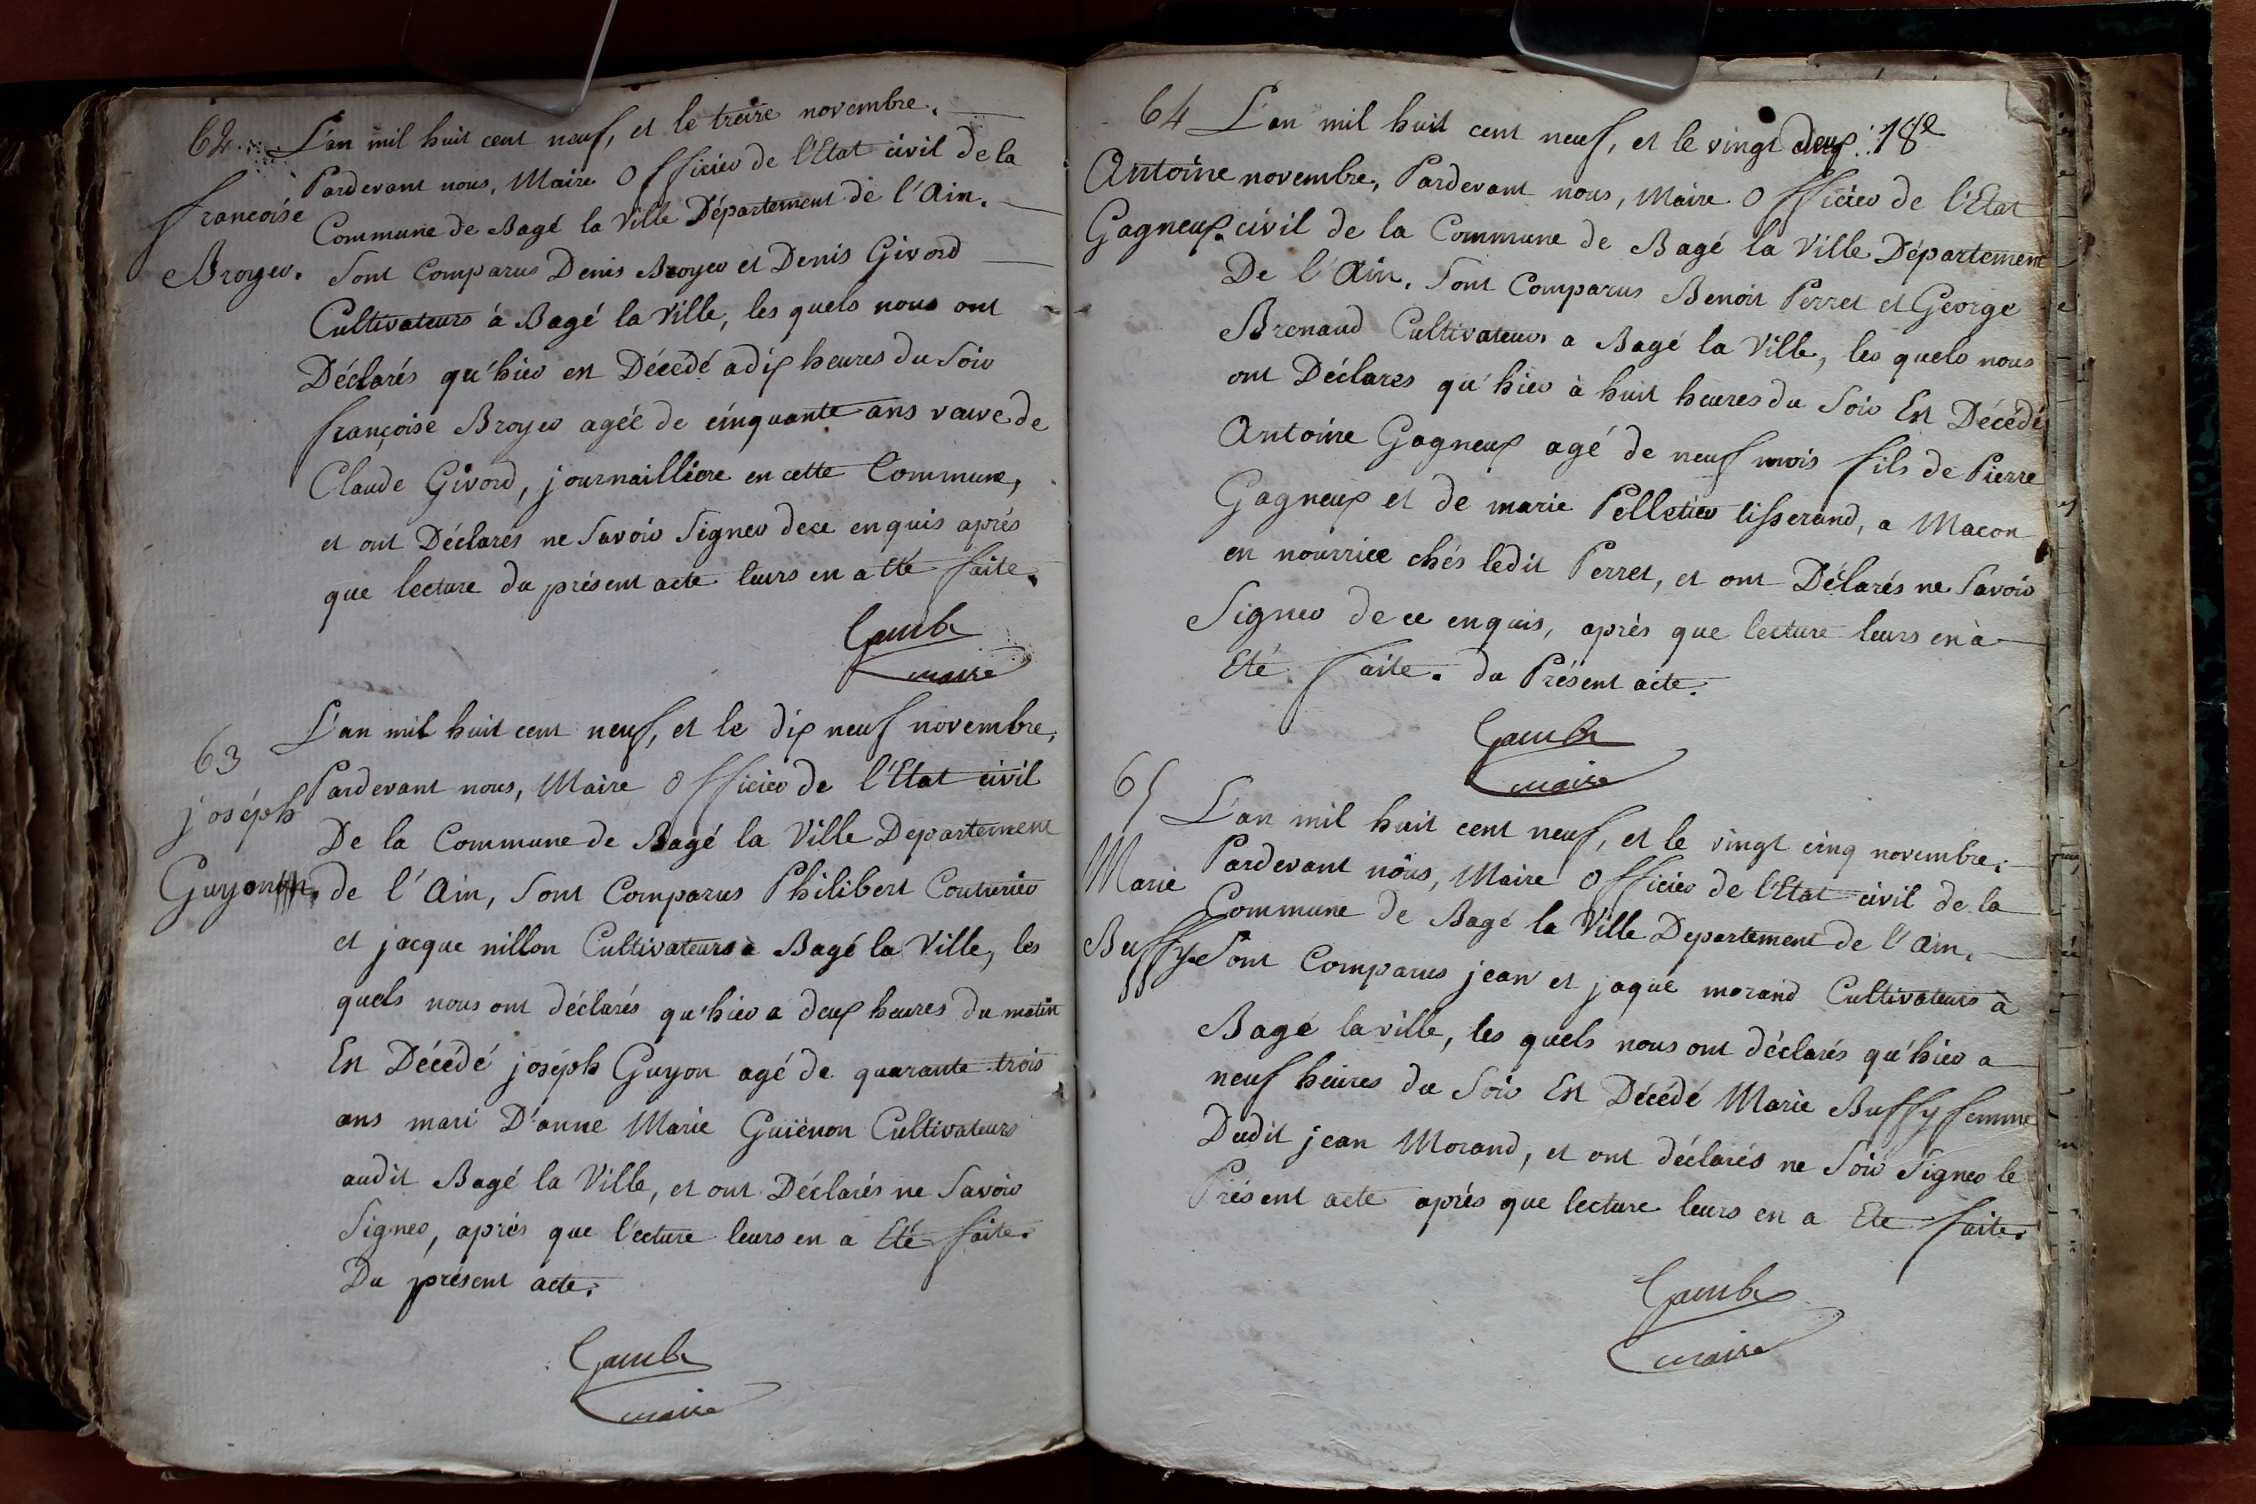 62. L'an mil huit cent neuf, et le treize novembre.
Pardevant nous, Maire Officier de l'Etat civil de la
françoise Commune de Bagé la Ville Département de l'Ain.
Broyer. Sont Comparus Denis Broyer et Denis Givord
Cultivateurs à Bagé la Ville, les quels nous ont
Déclarés qu'hier est Décedé a dix heures du Soir
françoise Broyer agée de cinquante ans veuve de
Claude Givord, journailliere en cette Commune,
et ont Déclarés ne Savoir Signer de ce enquis aprés
que lecture du présent acte leurs en a été faite.
Gamb
maire
63 L'an mil huit cent neuf, et le dix neuf novembre,
joséph Pardevant nous, Maire Officier de l'Etat civil
De la Commune de Bagé la Ville Departement
Guyon de l'Ain, Sont Comparus Philibert Couturier
et jacque nillon Cultivateurs à Bagé la Ville, les
quels nous ont déclarés qu'hier a deux heures du matin
Est Décédé joséph Guyon agé de quarante trois
ans mari D'anne Marie Guiénon Cultivateurs
audit Bagé la Ville, et ont Déclarés ne Savoir
Signer, aprés que lécture leurs en a Eté faite.
Du présent acte.
Gamb
maire
64 L'an mil huit cent neuf, et le vingt deux 18e
Antoine novembre, Pardevant nous, Maire Officier de l'Etat
Gagneux. civil de la Commune de Bagé la Ville Département
De l'Ain. Sont Comparus Benoit Perret et George
Brenaud Cultivateurs a Bagé la Ville, les quels nous
ont Déclarés qu'hier à huit heures du Soir Est Décédé
Antoine Gagneux agé de neuf mois fils de Pierre
Gagneux et de marie Pelletier tisserand, a Macon
en nourrice chés ledit Perret, et ont Délarés ne Savoir
Signer de ce enquis, aprés que lecture leurs en à
Eté faite. du Présent acte.
Gamb
maire
65 L'an mil huit cent neuf, et le vingt cinq novembre.
Marie Pardevant nous, Maire Officier de l'Etat civil de la
Commune de Bagé la Ville Departement de l'Ain.
Buffy Sont Comparus jean et jaque morand Cultivateurs à
Bagé la ville, les quels nous ont déclarés qu'hier a
neuf heures du Soir Est Décédé Marie Buffy femme
Dudit jean Morand, et ont déclarés ne Soir Signer le
Présent acte aprés que lecture leurs en a Ete faite.
Gamb
maire